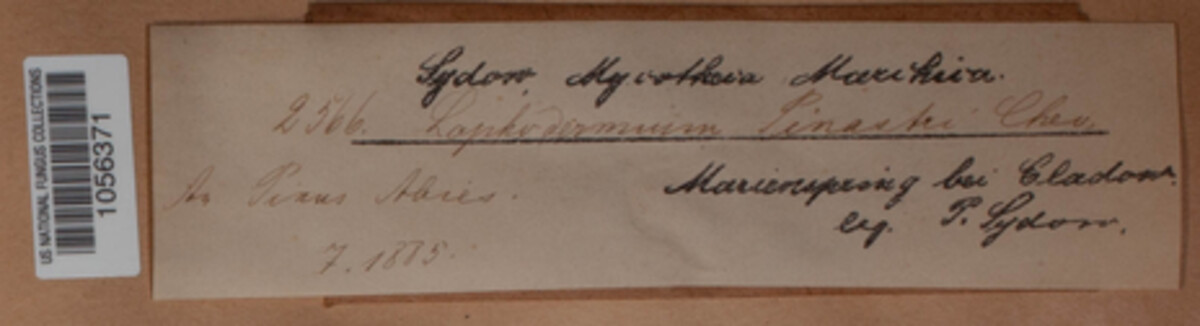 US NATIONAL FUNGUS COLLECTIONS
1056371
Sydow, Mycotheca Marchica.
2566. Lophodermium Pinastri Chev.
An Pinus Abies.
Marienspring bei Cladow.
leg. P. Sydow.
7. 1885.